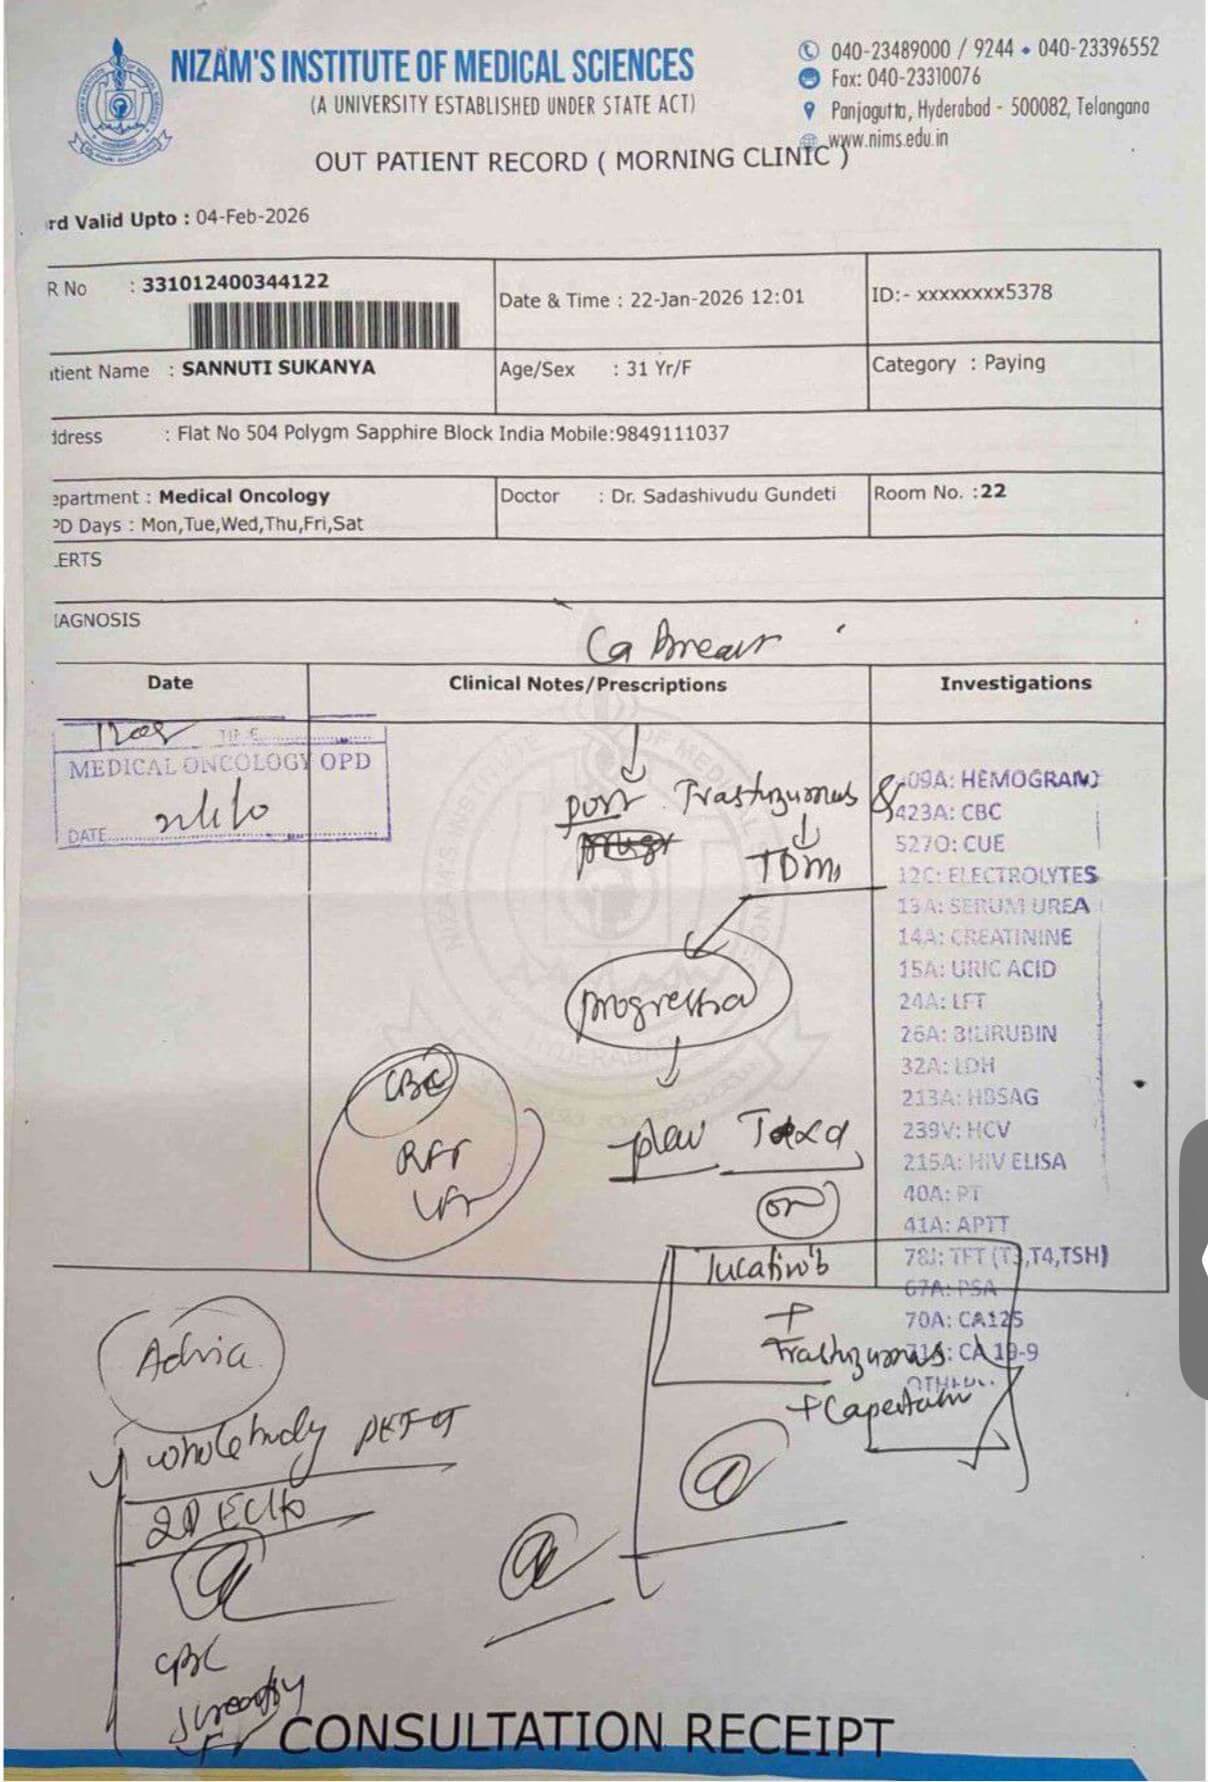 NIZAM'S INSTITUTE OF MEDICAL SCIENCES
(A UNIVERSITY ESTABLISHED UNDER STATE ACT)
040-23489000 / 9244 • 040-23396552
Fax: 040-23310076
Panjagutta, Hyderabad - 500082, Telangana
www.nims.edu.in
OUT PATIENT RECORD ( MORNING CLINIC )
rd Valid Upto : 04-Feb-2026
R No : 331012400344122
Date & Time : 22-Jan-2026 12:01
ID:- xxxxxxxx5378
tient Name : SANNUTI SUKANYA
Age/Sex : 31 Yr/F
Category : Paying
ddress : Flat No 504 Polygm Sapphire Block India Mobile:9849111037
epartment : Medical Oncology
PD Days : Mon,Tue,Wed,Thu,Fri,Sat
Doctor : Dr. Sadashivudu Gundeti
Room No. :22
ERTS
IAGNOSIS
Ca Breast
Date
Clinical Notes/Prescriptions
Investigations
TIME
MEDICAL ONCOLOGY OPD
DATE
post Trastuzumab &
TDM1
progression
plan
CBC
RFT
LFT
(or)
Tucatinib
+
Trastuzumab
+ Capecitabine
409A: HEMOGRAM
423A: CBC
527O: CUE
12C: ELECTROLYTES
13A: SERUM UREA
14A: CREATININE
15A: URIC ACID
24A: LFT
26A: BILIRUBIN
32A: LDH
213A: HBSAG
239V: HCV
215A: HIV ELISA
40A: PT
41A: APTT
78J: TFT (T3,T4,TSH)
67A: PSA
70A: CA125
71A: CA 19-9
OTHER
Advice
whole body PET CT
2D Echo
CBC
CONSULTATION RECEIPT